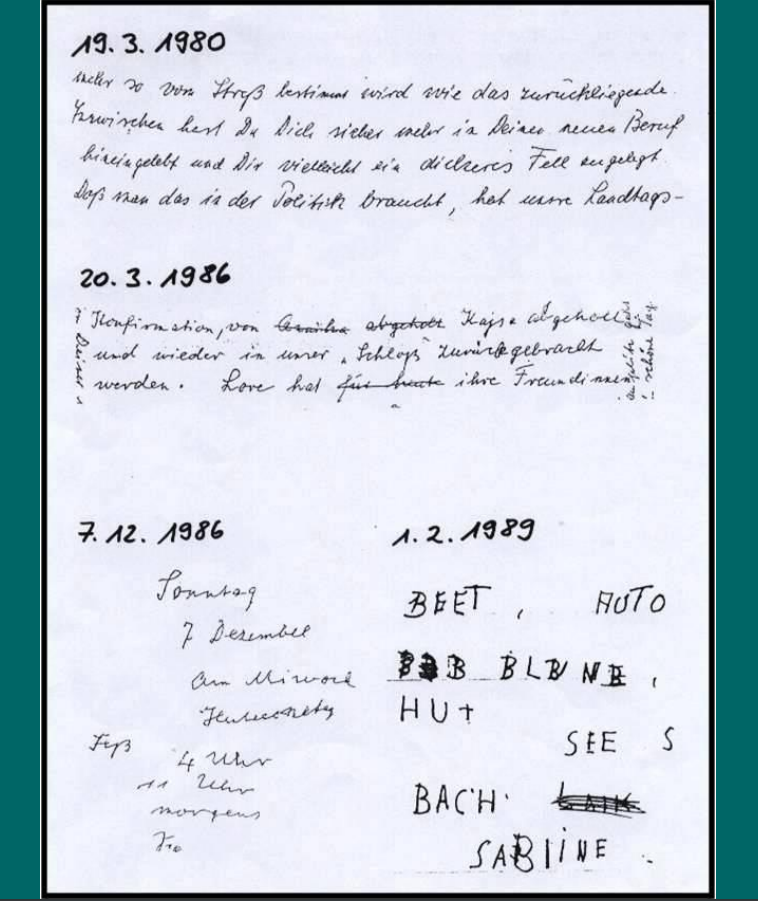 19. 3. 1980
mehr so vom Streß bestimmt wird wie das zurückliegende.
Inzwischen hast Du Dich sicher mehr in Deinen neuen Beruf
hineingelebt und Dir vielleicht ein dickeres Fell angelegt.
Daß man das in der Politik braucht, hat unsre Landtags-
20. 3. 1986
Konfirmation, von abgeholt Kajsa abgeholt
und wieder in unser "Schloß" zurückgebracht
werden. Lore hat für heute ihre Freundinnen
schöne Tag
7. 12. 1986
Sonntag
7 Dezember
am
4 Uhr
11 Uhr
morgens
1. 2. 1989
BEET, AUTO
HUT
SEE S
BACH
SABIINE